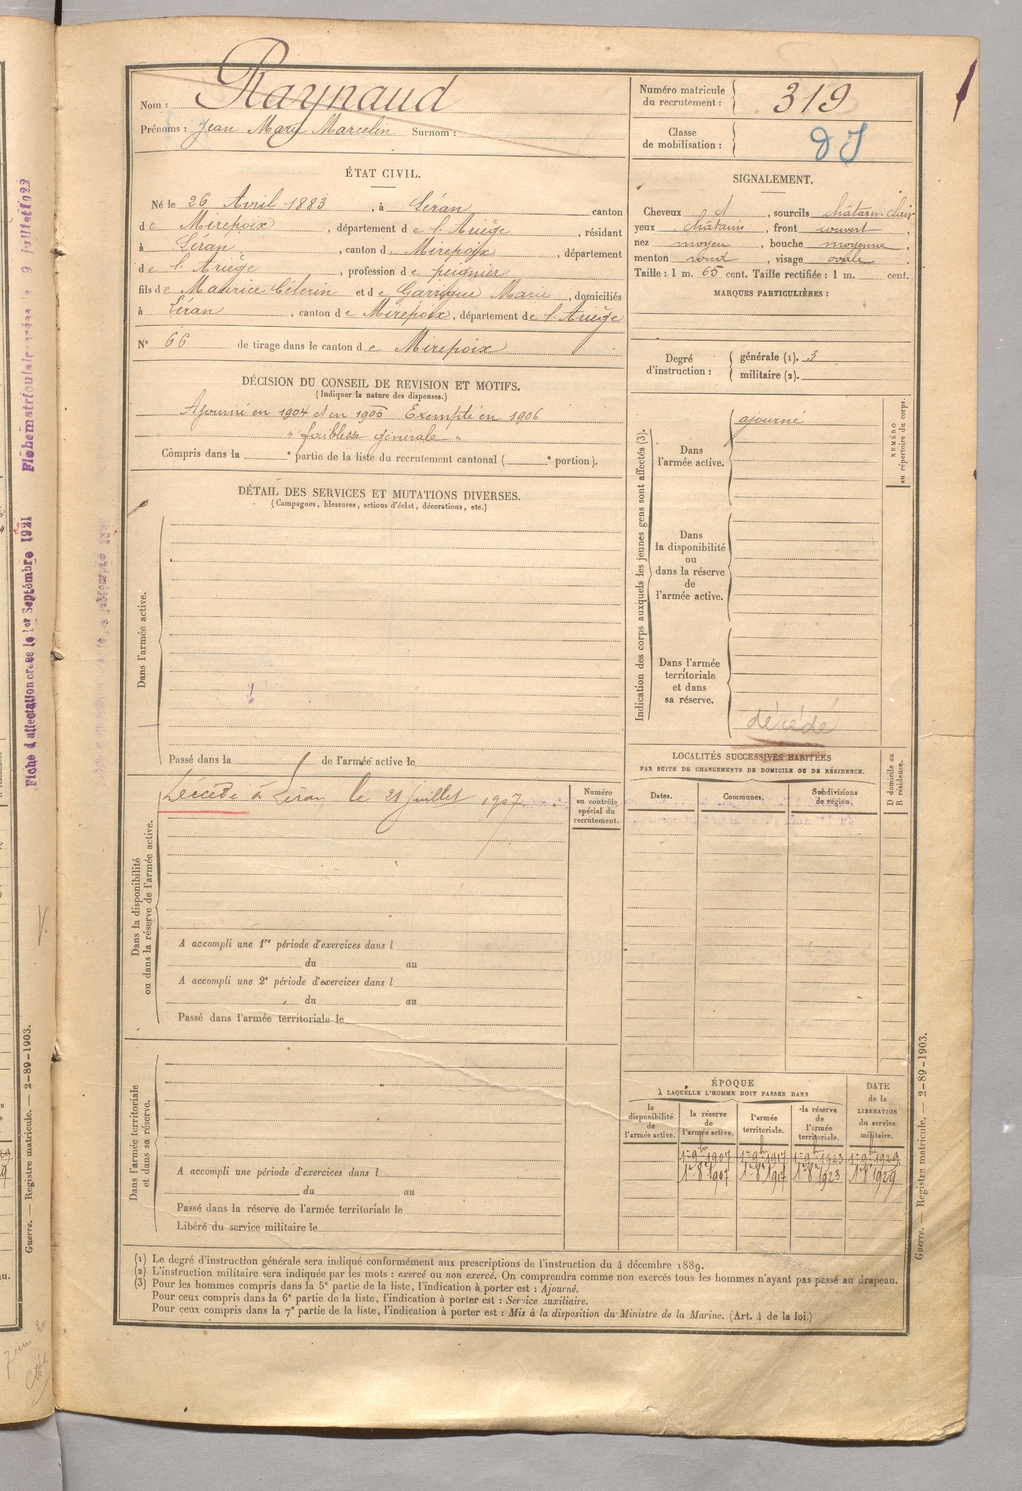 Nom : Raynaud
Prénoms : Jean Marie Marcelin Surnom :
Numéro matricule du recrutement : 319
Classe de mobilisation :
ÉTAT CIVIL.
Né le 26 Avril 1883, à Léran canton
de Mirepoix, département de l'Ariège, résidant
à Léran, canton de Mirepoix, département
de l'Ariège, profession de peignier
fils de Maurice Célerin et de Garrigue Marie, domiciliés
à Léran, canton de Mirepoix, département de l'Ariège
N° 66 de tirage dans le canton de Mirepoix
SIGNALEMENT.
Cheveux et, sourcils châtain-clair
yeux châtains, front couvert,
nez moyen, bouche moyenne,
menton rond, visage ovale
Taille : 1 m. 65 cent. Taille rectifiée : 1 m. cent.
MARQUES PARTICULIÈRES :
Degré d'instruction : générale (1). 3
militaire (2).
DÉCISION DU CONSEIL DE REVISION ET MOTIFS.
(Indiquer la nature des dispenses.)
Ajourné en 1904 et en 1905 Exempté en 1906
" faiblesse générale "
Compris dans la e partie de la liste du recrutement cantonal ( e portion).
DÉTAIL DES SERVICES ET MUTATIONS DIVERSES.
(Campagnes, blessures, actions d'éclat, décorations, etc.)
Dans l'armée active.
Passé dans la de l'armée active le
Indication des corps auxquels les jeunes gens sont affectés (3).
NUMÉRO au répertoire du corps.
Dans l'armée active.
ajourné
Dans la disponibilité ou dans la réserve de l'armée active.
Dans l'armée territoriale et dans sa réserve.
décédé
Dans la disponibilité ou dans la réserve de l'armée active.
Décédé à Léran le 21 juillet 1907
Numéro au contrôle spécial du recrutement.
A accompli une 1re période d'exercices dans l
du au
A accompli une 2e période d'exercices dans l
du au
Passé dans l'armée territoriale le
LOCALITÉS SUCCESSIVES HABITÉES
PAR SUITE DE CHANGEMENTS DE DOMICILE OU DE RÉSIDENCE.
Dates. Communes. Subdivisions de région.
D domicile ou R résidence.
Dans l'armée territoriale et dans sa réserve.
A accompli une période d'exercices dans l
du au
Passé dans la réserve de l'armée territoriale le
Libéré du service militaire le
ÉPOQUE
À LAQUELLE L'HOMME DOIT PASSER DANS
la disponibilité de l'armée active.
la réserve de l'armée active.
l'armée territoriale.
la réserve de l'armée territoriale.
DATE de la LIBÉRATION du service militaire.
1er 9bre 1907 1er 9bre 1917 1er 9bre 1923 1er 9bre 1929
(1) Le degré d'instruction générale sera indiqué conformément aux prescriptions de l'instruction du 4 décembre 1889.
(2) L'instruction militaire sera indiquée par les mots : exercé ou non exercé. On comprendra comme non exercés tous les hommes n'ayant pas passé au drapeau.
(3) Pour les hommes compris dans la 5e partie de la liste, l'indication à porter est : Ajourné.
Pour ceux compris dans la 6e partie de la liste, l'indication à porter est : Service auxiliaire.
Pour ceux compris dans la 7e partie de la liste, l'indication à porter est : Mis à la disposition du Ministre de la Marine. (Art. 4 de la loi.)
Guerre. — Registre matricule. — 2-89-1903.
Guerre. — Registre matricule. — 2-89-1903.
Fiche d'affectation créée le 1er Septembre 1921
Fiche matriculaire créée le 9 juillet 1922